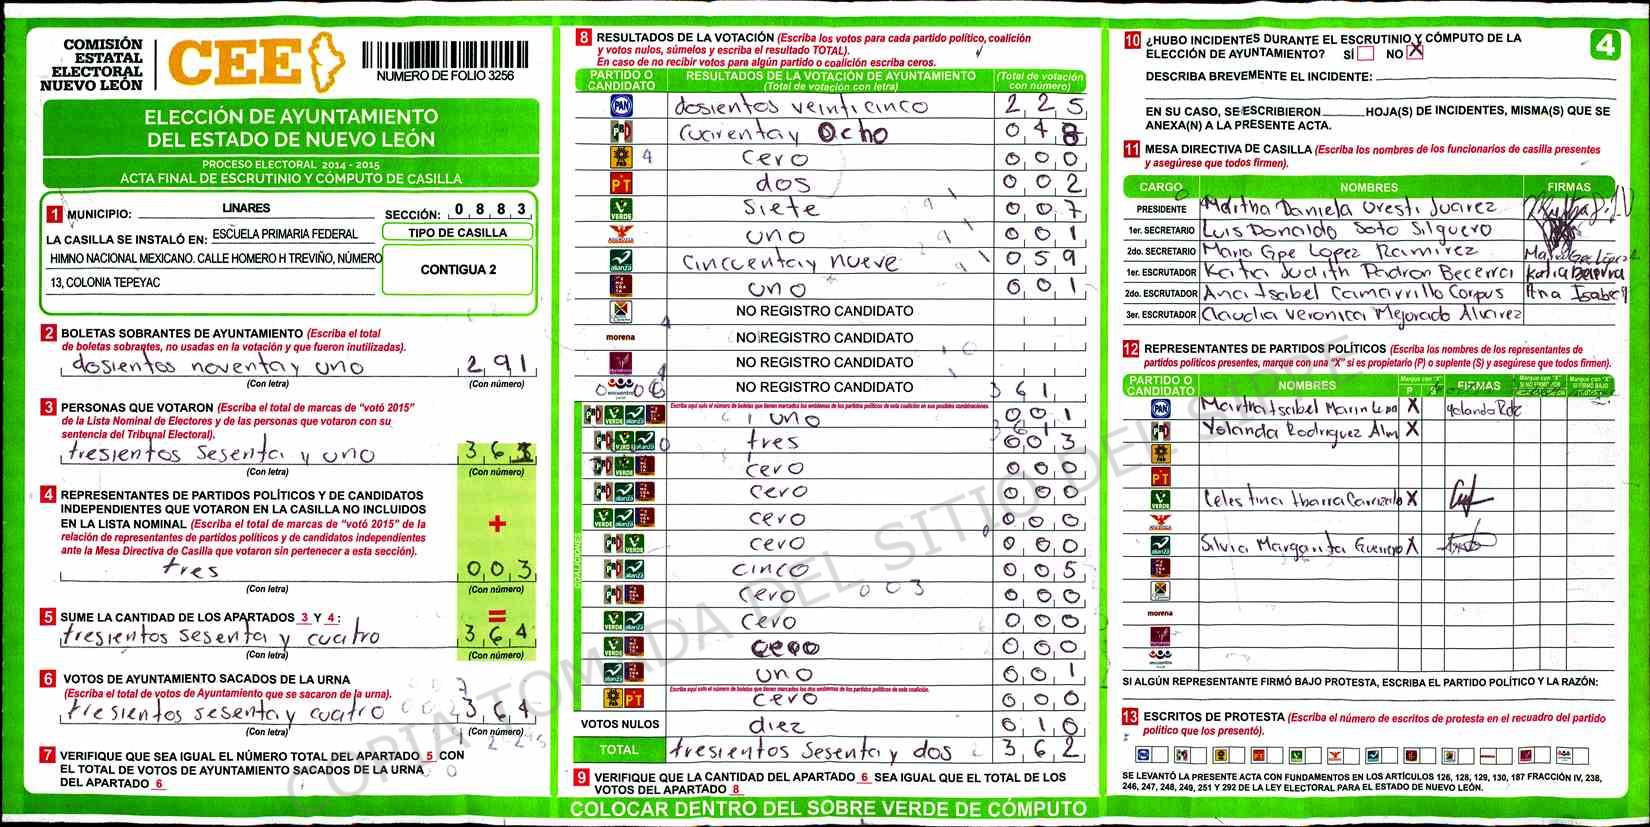 COMISIÓN
ESTATAL
ELECTORAL
NUEVO LEÓN
CEE
NUMERO DE FOLIO 3256
ELECCIÓN DE AYUNTAMIENTO
DEL ESTADO DE NUEVO LEÓN
PROCESO ELECTORAL 2014 - 2015
ACTA FINAL DE ESCRUTINIO Y CÓMPUTO DE CASILLA
1 MUNICIPIO: LINARES SECCIÓN: 0 8 8 3
LA CASILLA SE INSTALÓ EN: ESCUELA PRIMARIA FEDERAL
HIMNO NACIONAL MEXICANO. CALLE HOMERO H TREVIÑO, NÚMERO
13, COLONIA TEPEYAC
TIPO DE CASILLA
CONTIGUA 2
2 BOLETAS SOBRANTES DE AYUNTAMIENTO (Escriba el total
de boletas sobrantes, no usadas en la votación y que fueron inutilizadas).
dosientos noventa y uno 2 9 1
(Con letra) (Con número)
3 PERSONAS QUE VOTARON (Escriba el total de marcas de "votó 2015"
de la Lista Nominal de Electores y de las personas que votaron con su
sentencia del Tribunal Electoral).
tresientos sesenta y uno 3 6 1
(Con letra) (Con número)
4 REPRESENTANTES DE PARTIDOS POLÍTICOS Y DE CANDIDATOS
INDEPENDIENTES QUE VOTARON EN LA CASILLA NO INCLUIDOS
EN LA LISTA NOMINAL (Escriba el total de marcas de "votó 2015" de la
relación de representantes de partidos políticos y de candidatos independientes
ante la Mesa Directiva de Casilla que votaron sin pertenecer a esta sección).
+
tres 0 0 3
(Con letra) (Con número)
5 SUME LA CANTIDAD DE LOS APARTADOS 3 Y 4: =
tresientos sesenta y cuatro 3 6 4
(Con letra) (Con número)
6 VOTOS DE AYUNTAMIENTO SACADOS DE LA URNA
(Escriba el total de votos de Ayuntamiento que se sacaron de la urna).
tresientos sesenta y cuatro 3 6 4
(Con letra) (Con número)
7 VERIFIQUE QUE SEA IGUAL EL NÚMERO TOTAL DEL APARTADO 5 CON
EL TOTAL DE VOTOS DE AYUNTAMIENTO SACADOS DE LA URNA
DEL APARTADO 6
8 RESULTADOS DE LA VOTACIÓN (Escriba los votos para cada partido político, coalición
y votos nulos, súmelos y escriba el resultado TOTAL).
En caso de no recibir votos para algún partido o coalición escriba ceros.
PARTIDO O CANDIDATO RESULTADOS DE LA VOTACIÓN DE AYUNTAMIENTO (Total de votación con letra) (Total de votación con número)
PAN dosientos veinticinco 2 2 5
PRI cuarenta y Ocho 0 4 8
PRD cero 0 0 0
PT dos 0 0 2
VERDE siete 0 0 7
uno 0 0 1
alianza cincuenta y nueve 0 5 9
uno 0 0 1
NO REGISTRO CANDIDATO
morena NO REGISTRO CANDIDATO
NO REGISTRO CANDIDATO
encuentro NO REGISTRO CANDIDATO
3 6 1
Escriba aquí solo el número de boletas que tienen marcados los emblemas de los partidos políticos de esta coalición en sus posibles combinaciones.
uno 0 0 1
tres 0 0 3
cero 0 0 0
cero 0 0 0
cero 0 0 0
cero 0 0 0
cinco 0 0 5
cero 0 0 3 0 0 0
cero 0 0 0
cero 0 0 0
uno 0 0 1
Escriba aquí solo el número de boletas que tienen marcados los dos emblemas de los partidos políticos de esta coalición.
PRD PT cero 0 0 0
COALICIONES
VOTOS NULOS diez 0 1 0
TOTAL tresientos sesenta y dos 3 6 2
9 VERIFIQUE QUE LA CANTIDAD DEL APARTADO 6 SEA IGUAL QUE EL TOTAL DE LOS
VOTOS DEL APARTADO 8
COLOCAR DENTRO DEL SOBRE VERDE DE CÓMPUTO
10 ¿HUBO INCIDENTES DURANTE EL ESCRUTINIO Y CÓMPUTO DE LA
ELECCIÓN DE AYUNTAMIENTO? SÍ NO X
4
DESCRIBA BREVEMENTE EL INCIDENTE:
EN SU CASO, SE ESCRIBIERON HOJA(S) DE INCIDENTES, MISMA(S) QUE SE
ANEXA(N) A LA PRESENTE ACTA.
11 MESA DIRECTIVA DE CASILLA (Escriba los nombres de los funcionarios de casilla presentes
y asegúrese que todos firmen).
CARGO NOMBRES FIRMAS
PRESIDENTE Martha Daniela Uresti Juarez
1er. SECRETARIO Luis Donaldo Soto Silguero
2do. SECRETARIO Maria Gpe Lopez Ramirez
1er. ESCRUTADOR Katia Judith Padron Becerra Katia Becerra
2do. ESCRUTADOR Ana Isabel Camarrillo Corpus Ana Isabel
3er. ESCRUTADOR Claudia Veronica Mejorado Alvarez
12 REPRESENTANTES DE PARTIDOS POLÍTICOS (Escriba los nombres de los representantes de
partidos políticos presentes, marque con una "X" si es propietario (P) o suplente (S) y asegúrese que todos firmen).
PARTIDO O CANDIDATO NOMBRES Marque con "X" P S FIRMAS Marque con "X" SI NO FIRMÓ Marque con "X" SI FIRMÓ BAJO
PAN Martha Isabel Marin X Yolanda Rdz
PRI Yolanda Rodriguez Alm X
PRD
PT
VERDE Celestina Ibarra Carrizalo X
alianza Silvia Margarita Guerrero X
morena
encuentro
SI ALGÚN REPRESENTANTE FIRMÓ BAJO PROTESTA, ESCRIBA EL PARTIDO POLÍTICO Y LA RAZÓN:
13 ESCRITOS DE PROTESTA (Escriba el número de escritos de protesta en el recuadro del partido
político que los presentó).
SE LEVANTÓ LA PRESENTE ACTA CON FUNDAMENTOS EN LOS ARTÍCULOS 126, 128, 129, 130, 187 FRACCIÓN IV, 238,
246, 247, 248, 249, 251 Y 292 DE LA LEY ELECTORAL PARA EL ESTADO DE NUEVO LEÓN.
COPIA TOMADA DEL SITIO DEL SIPRE